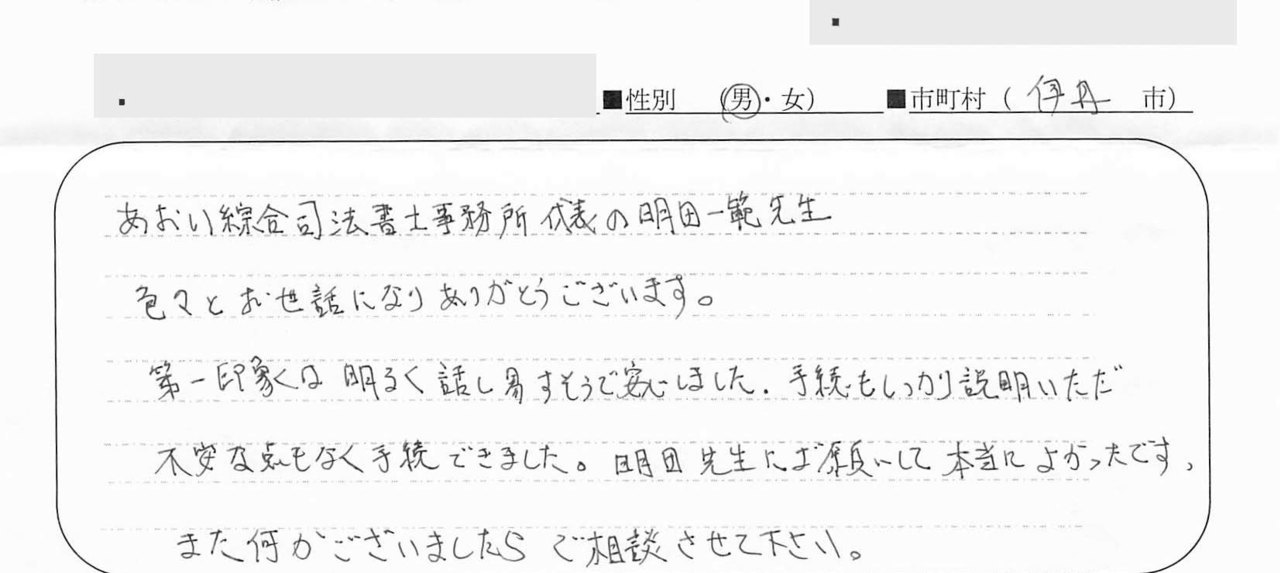 ■性別 (男・女) ■市町村 ( 伊丹 市)
あおい綜合司法書士事務所 代表の明田一範先生
色々とお世話になりありがとうございます。
第一印象は明るく話し易すそうで安心しました. 手続もしっかり説明いただ
不安な点もなく手続できました。明田先生にお願いして本当によかったです、
また何かございましたらご相談させて下さい。